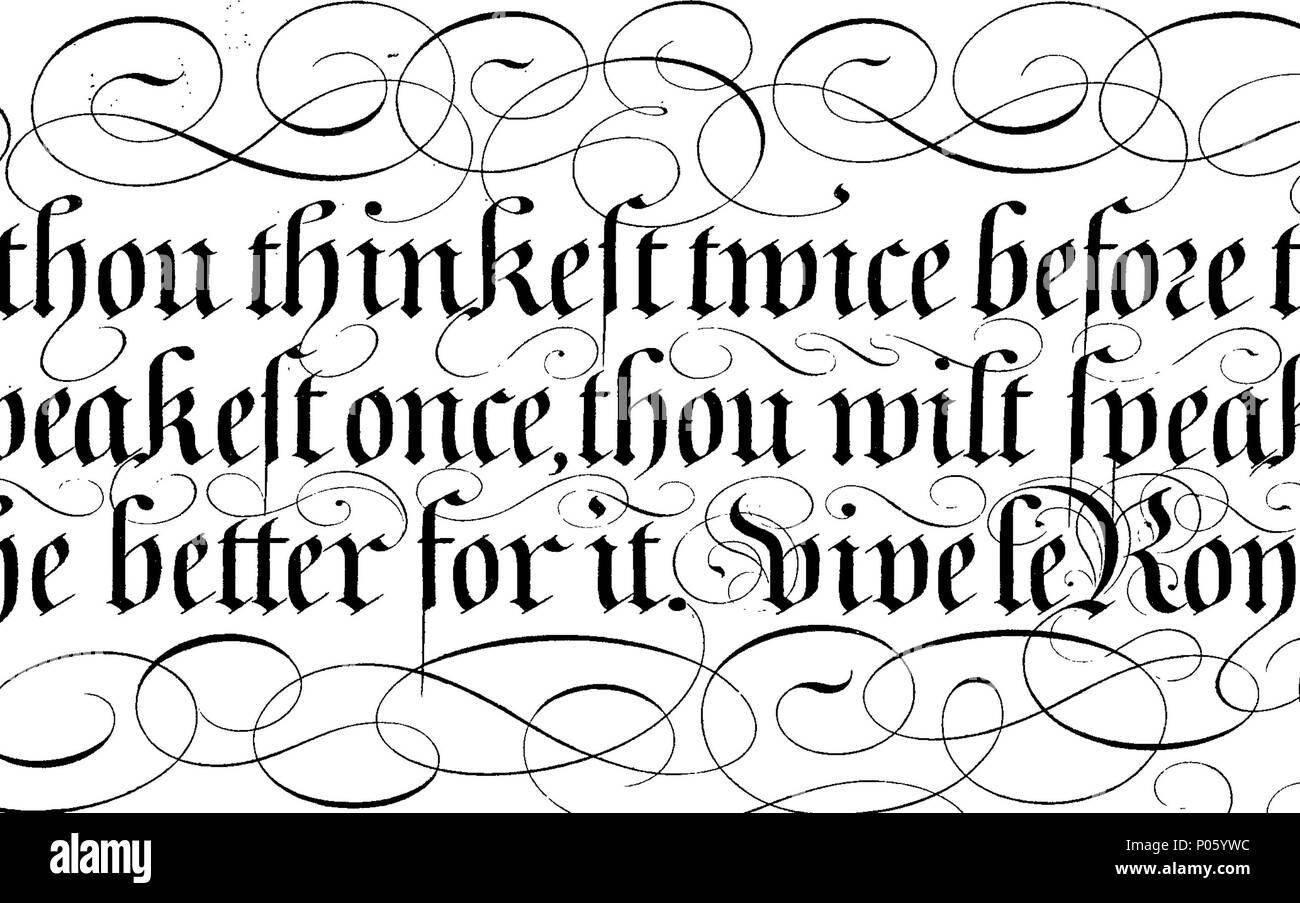 thou thinkeſt twice before t
peakeſt once, thou wilt ſpeak
he better for it. Vive le Roy
alamy
Image ID: P05YWC
www.alamy.com